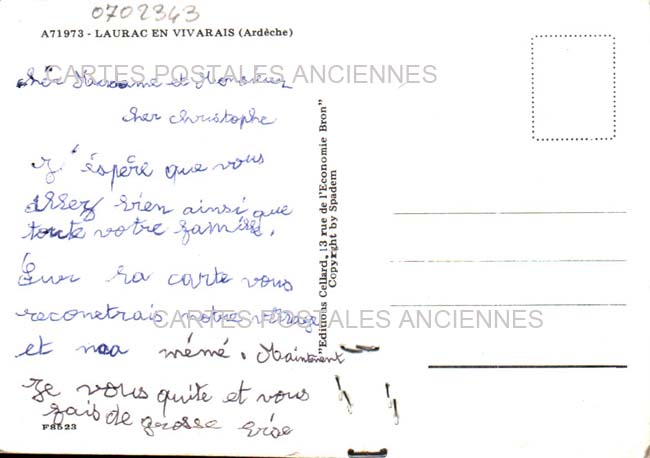 0702343
A71973 - LAURAC EN VIVARAIS (Ardèche)
CARTES POSTALES ANCIENNES
chèr Madame et Monsieur
cher christophe
J'éspère que vous
allez bien ainsi que
toute votre famille.
Sur la carte vous
reconetrais notre village
et ma mémé. Maintenent
Je vous quite et vous
fais de grosse bise
F8523
CARTES POSTALES ANCIENNES
"Editions Cellard, 13 rue de l'Economie Bron"
Copyright by Spadem